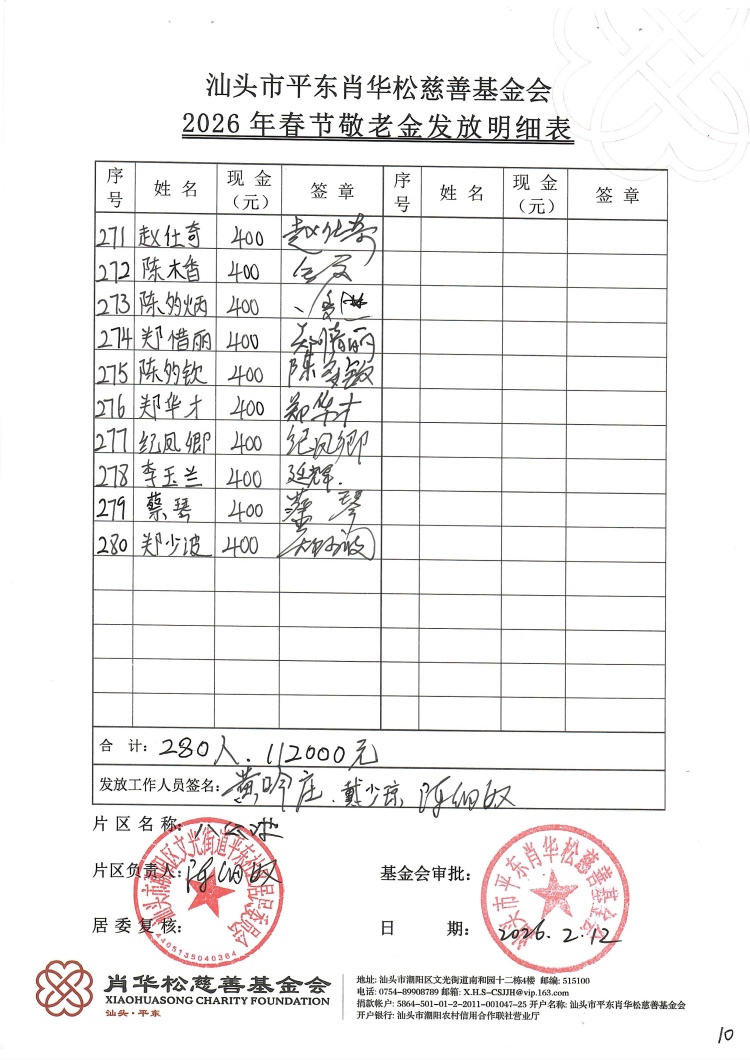 汕头市平东肖华松慈善基金会
2026年春节敬老金发放明细表
序号 姓名 现金（元） 签章 序号 姓名 现金（元） 签章
271 赵仕奇 400 赵仕奇
272 陈木香 400
273 陈灼炳 400
274 郑惜丽 400 郑惜丽
275 陈灼钦 400
276 郑华才 400 郑华才
277 纪凤卿 400 纪凤卿
278 李玉兰 400 廷辉.
279 蔡琴 400 蔡琴
280 郑少波 400
合计: 280人. 112000元
发放工作人员签名: 黄吟庄. 戴少琼
片区名称:
片区负责人:
基金会审批:
居委复核:
日期: 2026.2.12
汕头市潮阳区文光街道平东社区居民委员会
4405135040364
汕头市平东肖华松慈善基金会
肖华松慈善基金会
XIAOHUASONG CHARITY FOUNDATION
汕头·平东
地址: 汕头市潮阳区文光街道南和园十二栋4楼 邮编: 515100
电话: 0754-89908789 邮箱: X.H.S-CSJJH@vip.163.com
捐款帐户: 5864-501-01-2-2011-001047-25 开户名称: 汕头市平东肖华松慈善基金会
开户银行: 汕头市潮阳农村信用合作联社营业厅
10